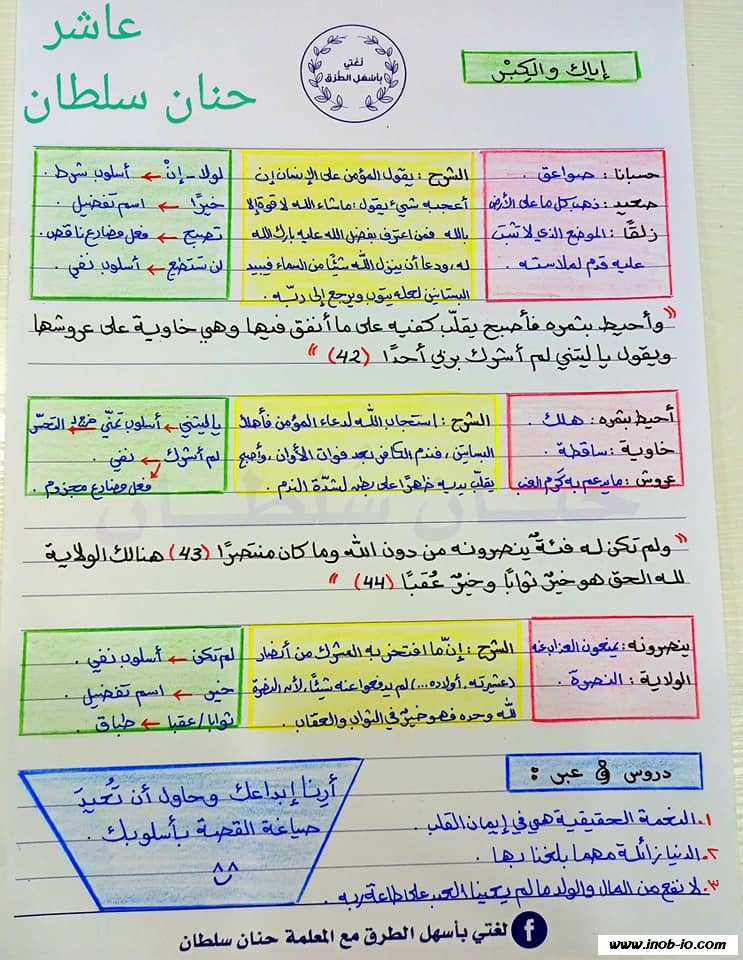 عاشر
حنان سلطان
لغتي
بأسهل الطرق
إياك والكِبْر
حسبانا: صواعق.
صعيد: ذهب كل ما على الأرض
زلقًا: الموضع الذي لا تثبت
عليه قدم لملاسته.
الشرح: يقول المؤمن على الإنسان إن
أعجبه شيء يقول: ما شاء الله لا قوة إلا
بالله فمن اعترف بفضل الله عليه بارك الله
له، ودعا أن ينزل الله شيئًا من السماء فيبيد
البساتين لعله يتوب ويرجع إلى ربّه.
لولا - إنْ ← أسلوب شرط.
خيرًا ← اسم تفضيل.
تصبح ← فعل مضارع ناقص.
لن تستطع ← أسلوب نفي.
"وأحيط بثمره فأصبح يقلّب كفّيه على ما أنفق فيها وهي خاوية على عروشها
ويقول يا ليتني لم أشرك بربي أحدًا (42)"
أحيط بثمره: هلك.
خاوية: ساقطة.
عروش: ما يدعم به كَرم العنب
الشرح: استجاب الله لدعاء المؤمن فأهلك
البساتين، فندم الكافر بعد فوات الأوان، وأصبح
يقلّب يديه ظهرًا على بطن لشدّة الندم.
يا ليتني ← أسلوب تمنّي خرج لـ التحسّر
لم أشرك ← نفي.
فعل مضارع مجزوم.
"ولم تكن له فئةٌ ينصرونه من دون الله وما كان منتصرًا (43) هنالك الولاية
لله الحق هو خيرٌ ثوابًا وخيرٌ عُقبًا (44)"
ينصرونه: يمنعون العذاب عنه
الولاية: النصرة.
الشرح: إنّ ما افتخر به المشرك من أنصار
(عشيرته، أولاده...) لم يدفعوا عنه شيئًا، لأن النصرة
لله وحده فهو خيرٌ في الثواب والعقاب.
لم تكن ← أسلوب نفي.
خير ← اسم تفضيل.
ثوابا/عقبا ← طباق.
دروس و عبر:
١. النعمة الحقيقية هي في إيمان القلب.
٢. الدنيا زائلة مهما بلغنا بها.
٣. لا نفع من المال والولد ما لم يعينا العبد على طاعة ربه.
أرِنا إبداعك وحاول أن تُعيدَ
صياغة القصة بأسلوبك.
^^
لغتي بأسهل الطرق مع المعلمة حنان سلطان
www.inob-io.com